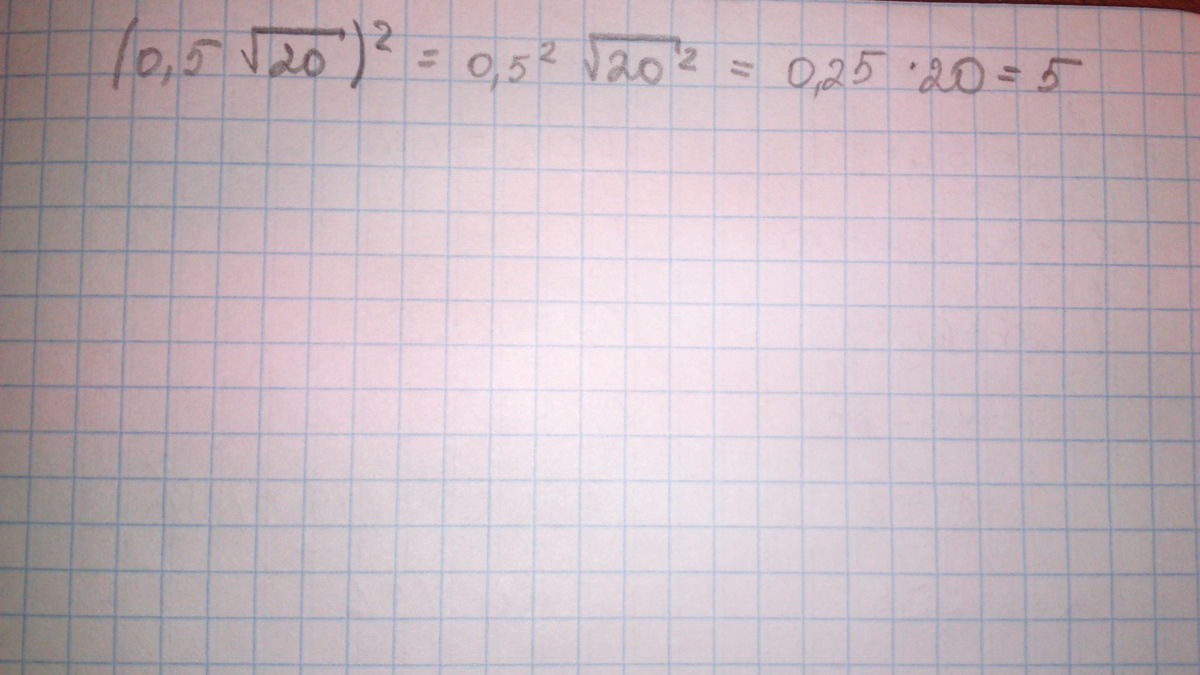 (0,5 √20)² = 0,5² √20² = 0,25 · 20 = 5